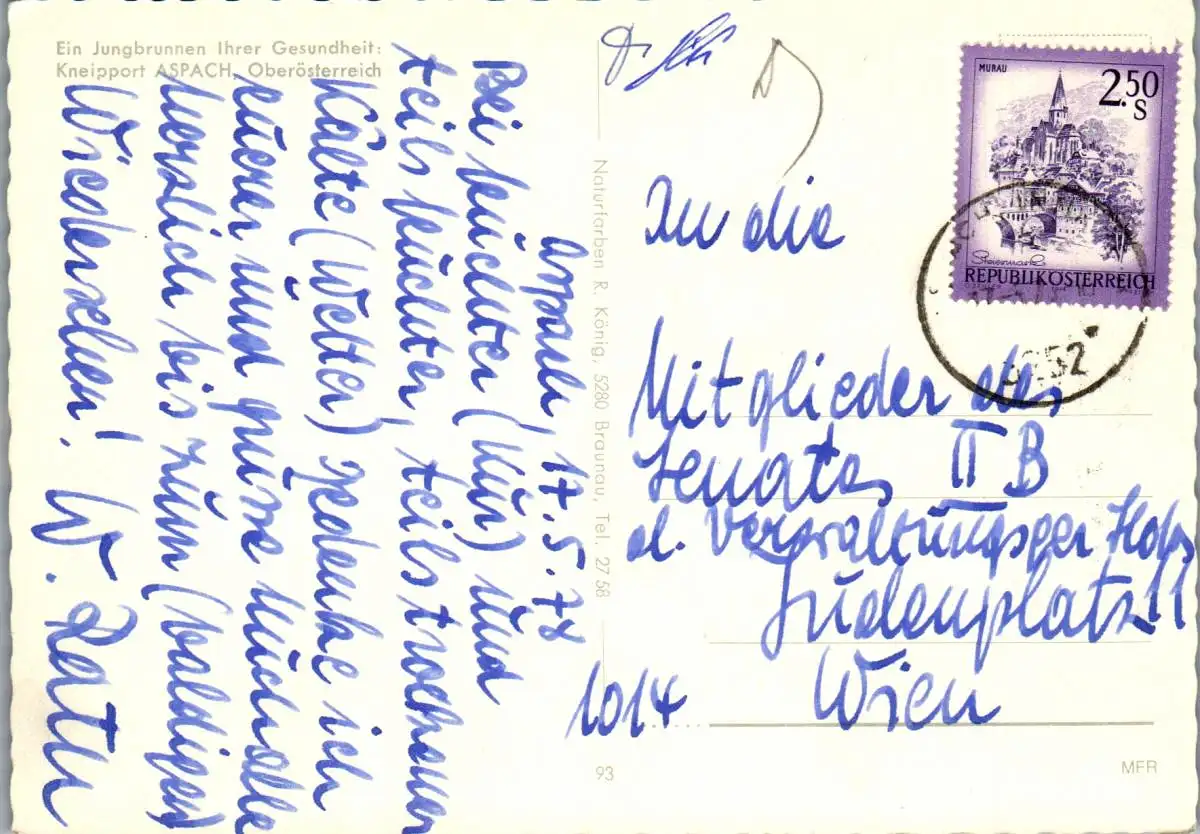 Ein Jungbrunnen Ihrer Gesundheit:
Kneipport ASPACH, Oberösterreich
Aspach, 17.5.78
Bei feuchter (Kur) und
teils feuchter, teils trockener
Kälte (Wetter) gedenke ich
Eurer und grüsse Euch alle
herzlich bis zum (baldigen)
Wiedersehen! W.
Naturfarben R. König, 5280 Braunau, Tel. 27 58
MURAU
2.50
S
Steiermark
REPUBLIK ÖSTERREICH
5252
An die
Mitglieder des
Senates II B
d. Verwaltungsger Hofs
Judenplatz 11
1014 Wien
93
MFR